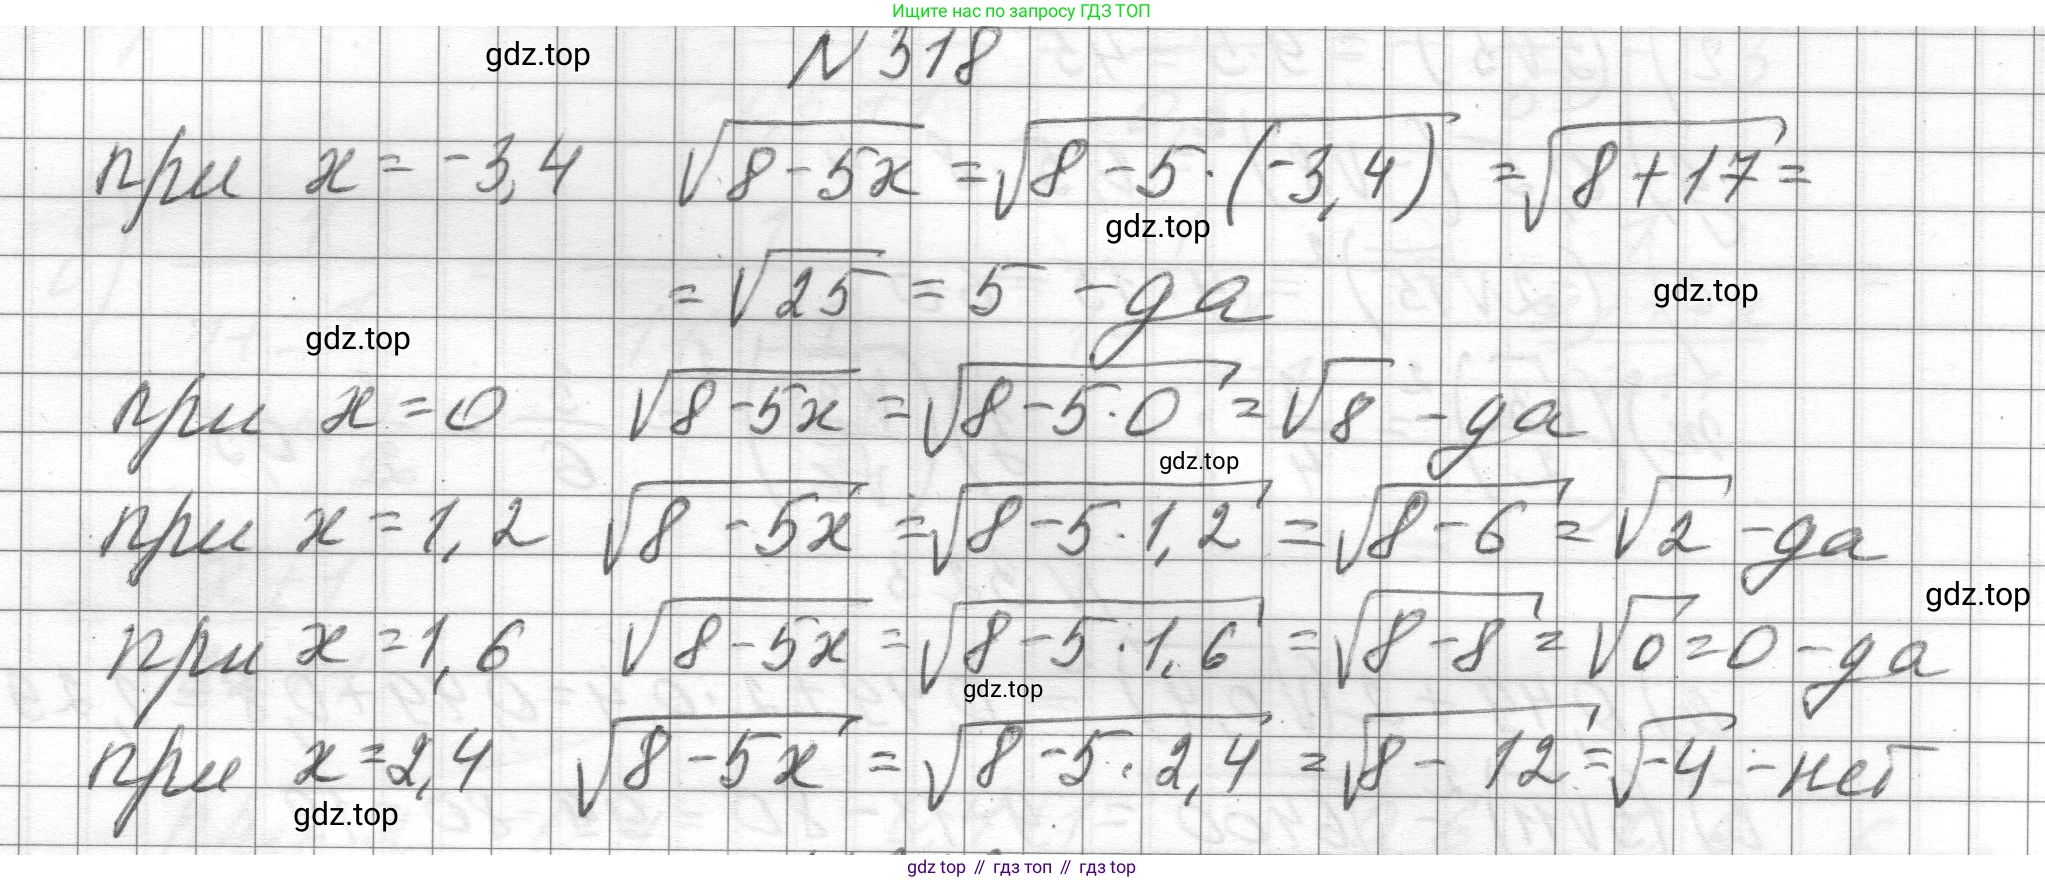 Ищите нас по запросу ГДЗ ТОП
gdz.top
N 318
при x = -3,4 √(8-5x) = √(8-5·(-3,4)) = √(8+17) =
gdz.top
= √25 = 5 - да
gdz.top
gdz.top
при x = 0 √(8-5x) = √(8-5·0) = √8 - да
gdz.top
при x = 1,2 √(8-5x) = √(8-5·1,2) = √(8-6) = √2 - да
gdz.top
при x = 1,6 √(8-5x) = √(8-5·1,6) = √(8-8) = √0 = 0 - да
gdz.top
при x = 2,4 √(8-5x) = √(8-5·2,4) = √(8-12) = √-4 - нет
gdz.top
gdz top // гдз топ // gdz top